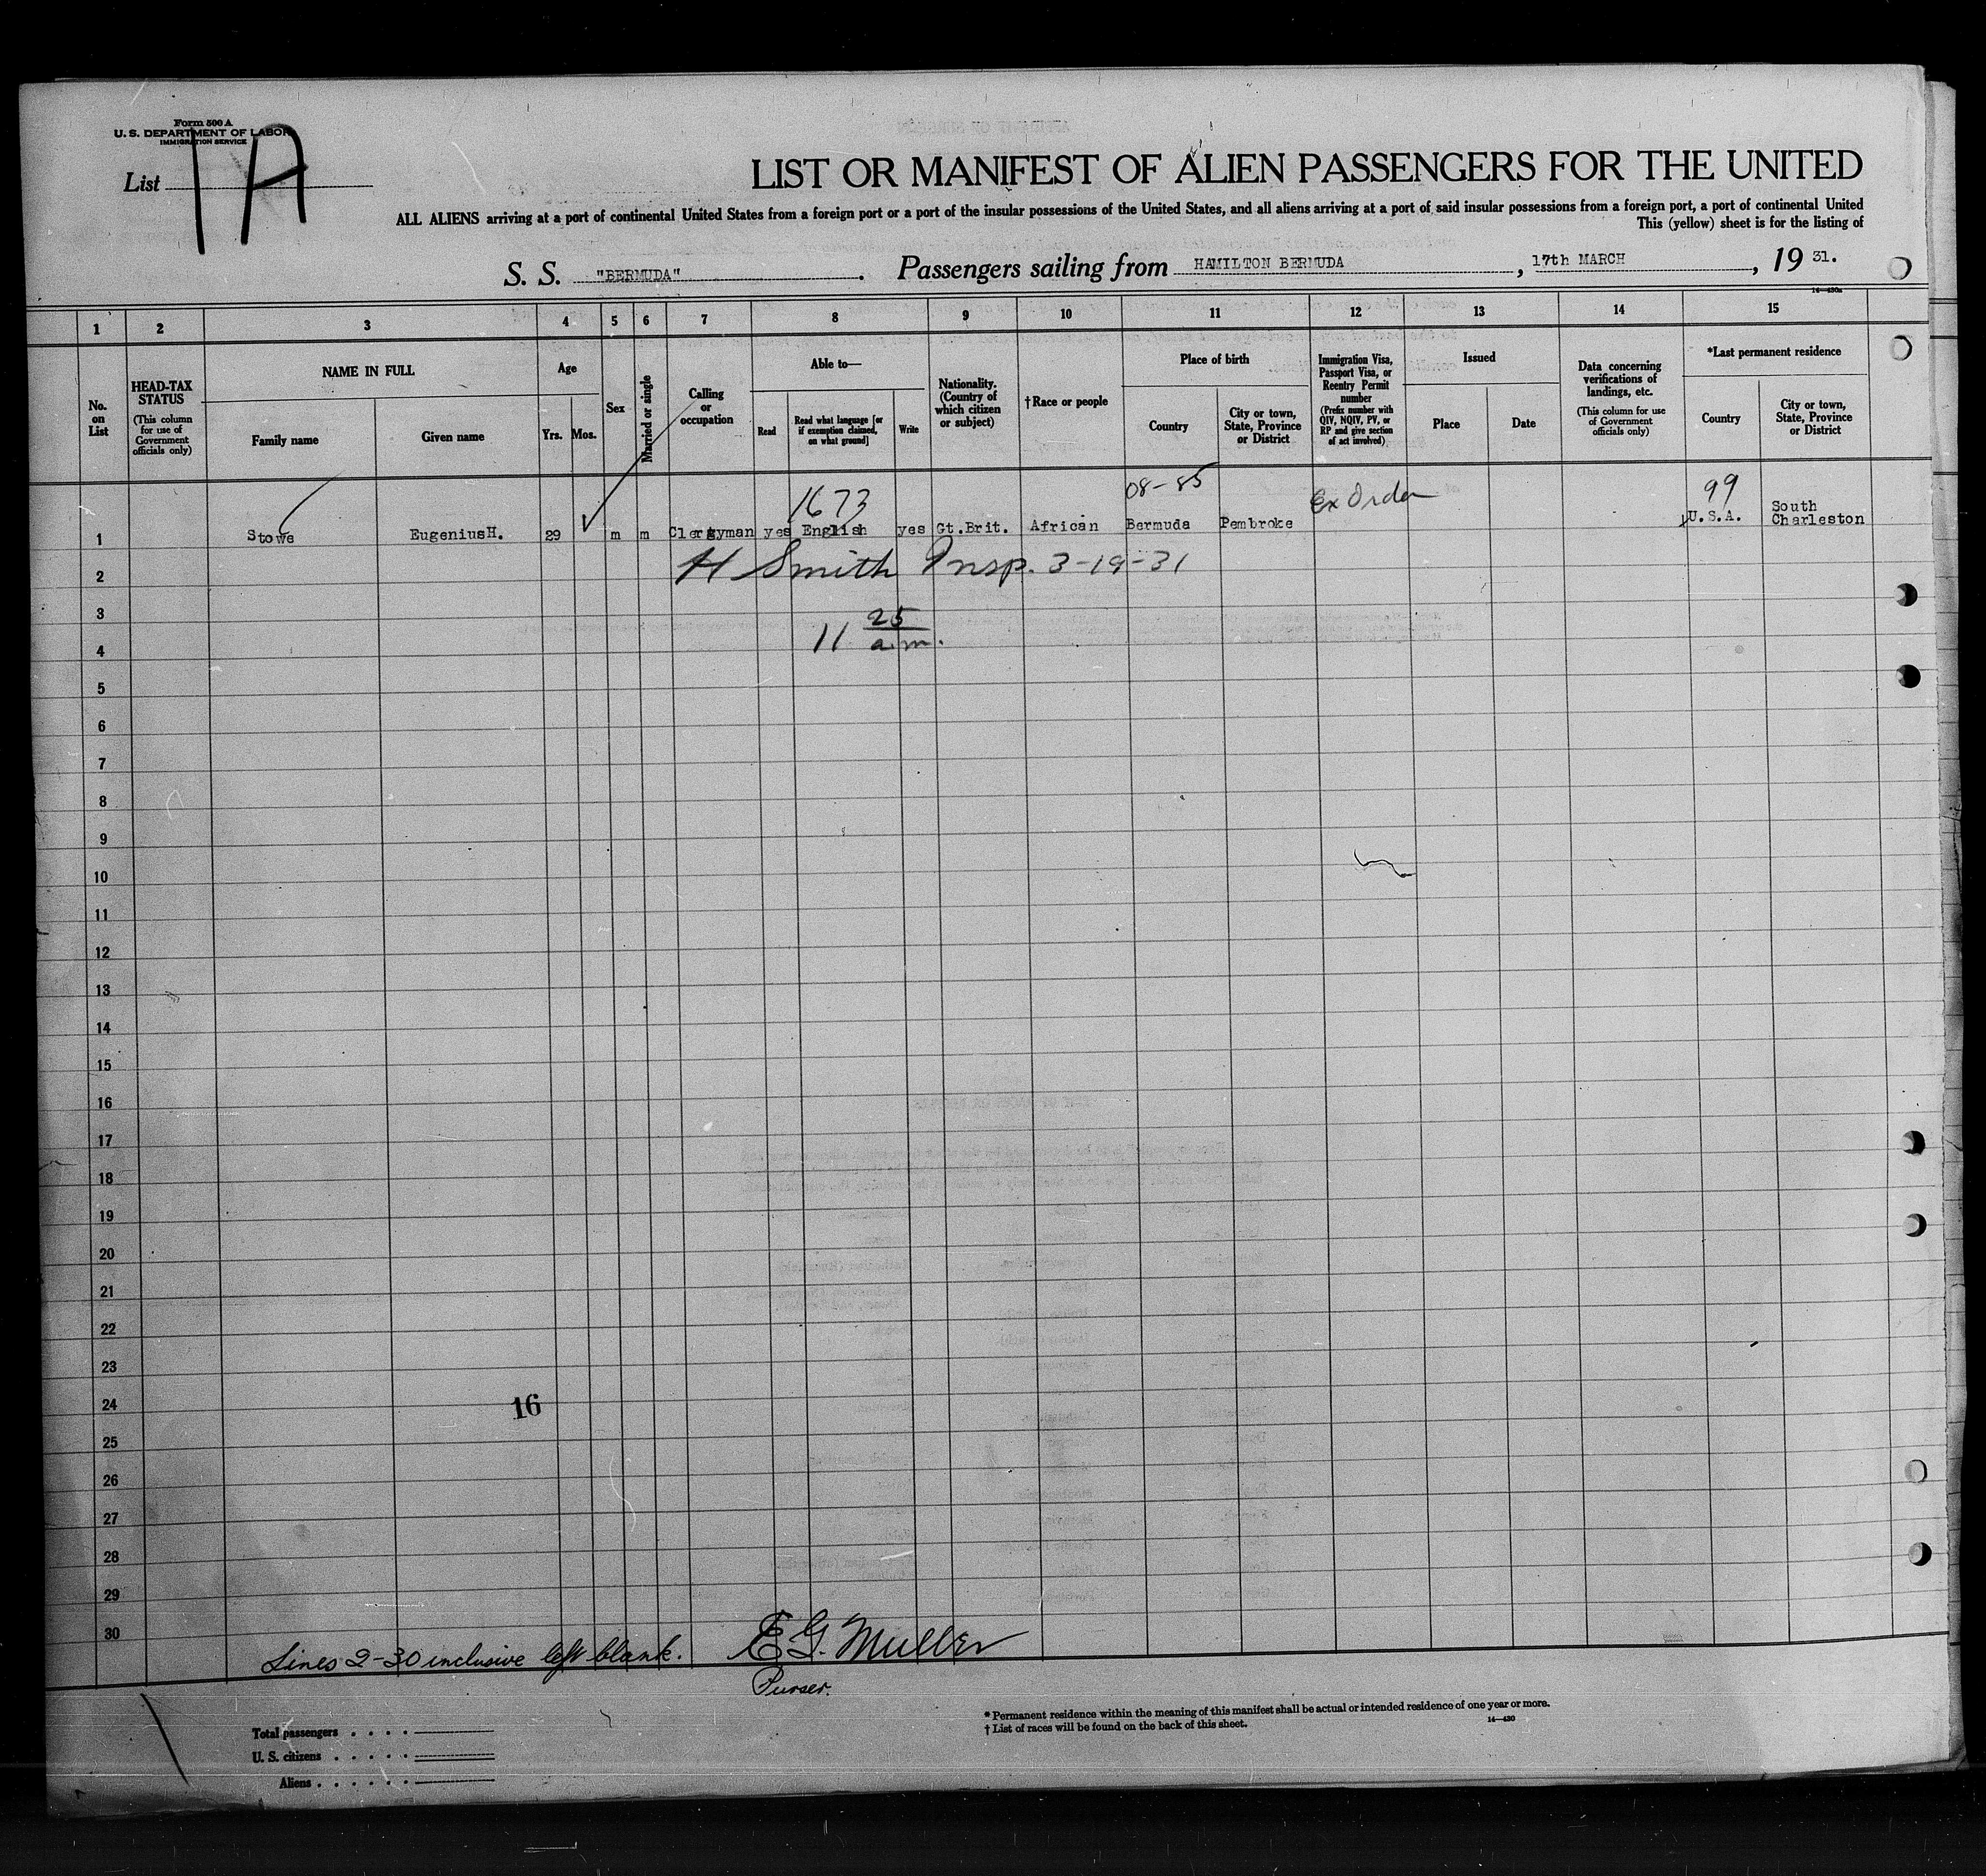 Form 500 A
U. S. DEPARTMENT OF LABOR
IMMIGRATION SERVICE
List 1A
LIST OR MANIFEST OF ALIEN PASSENGERS FOR THE UNITED
ALL ALIENS arriving at a port of continental United States from a foreign port or a port of the insular possessions of the United States, and all aliens arriving at a port of said insular possessions from a foreign port, a port of continental United
This (yellow) sheet is for the listing of
S. S. "BERMUDA". Passengers sailing from HAMILTON BERMUDA, 17th MARCH, 19 31.
14—430a
1 2 3 4 5 6 7 8 9 10 11 12 13 14 15
No. on List
HEAD-TAX STATUS
(This column for use of Government officials only)
NAME IN FULL
Family name
Given name
Age
Yrs.
Mos.
Sex
Married or single
Calling or occupation
Able to—
Read
Read what language [or if exemption claimed, on what ground]
Write
Nationality. (Country of which citizen or subject)
†Race or people
Place of birth
Country
City or town, State, Province or District
Immigration Visa, Passport Visa, or Reentry Permit number
(Prefix number with QIV, NQIV, PV, or RP and give section of act involved)
Issued
Place
Date
Data concerning verifications of landings, etc.
(This column for use of Government officials only)
*Last permanent residence
Country
City or town, State, Province or District
1673
08-85
Ex Order
99
1 Stowe EugeniusH. 29 m m Clergyman yes English yes Gt.Brit. African Bermuda Pembroke U.S.A. South Charleston
2 H Smith Insp. 3-19-31
3
11 25 a.m.
4
5
6
7
8
9
10
11
12
13
14
15
16
17
18
19
20
21
22
23
24
16
25
26
27
28
29
30
Lines 2-30 inclusive left blank. E G. Muller
Purser.
* Permanent residence within the meaning of this manifest shall be actual or intended residence of one year or more.
† List of races will be found on the back of this sheet.
14—430
Total passengers . . . .
U. S. citizens . . . . .
Aliens . . . . . .